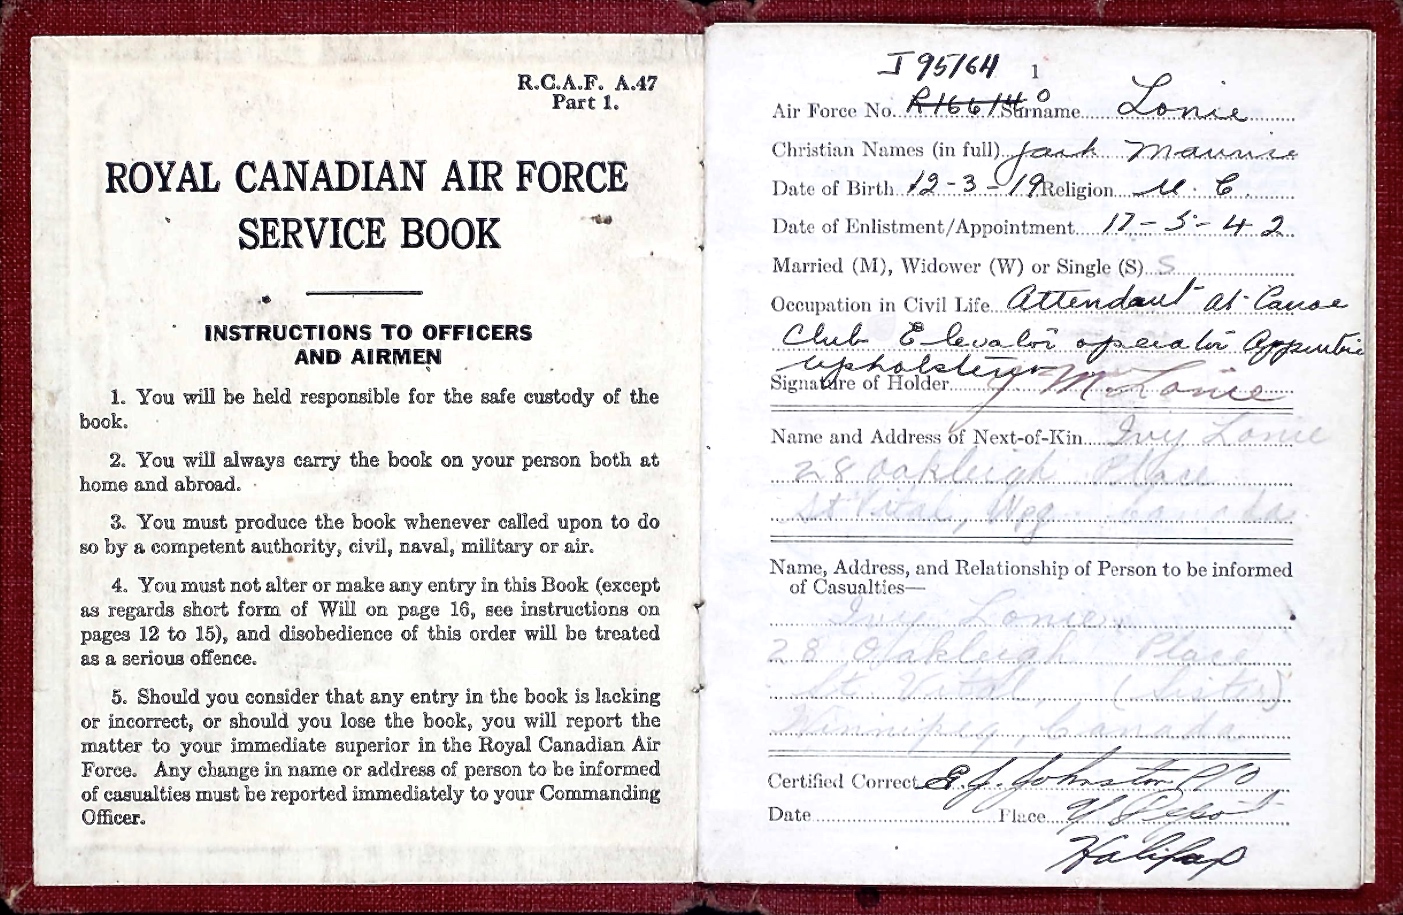 R.C.A.F. A.47
Part 1.
ROYAL CANADIAN AIR FORCE
SERVICE BOOK
INSTRUCTIONS TO OFFICERS
AND AIRMEN
1. You will be held responsible for the safe custody of the
book.
2. You will always carry the book on your person both at
home and abroad.
3. You must produce the book whenever called upon to do
so by a competent authority, civil, naval, military or air.
4. You must not alter or make any entry in this Book (except
as regards short form of Will on page 16, see instructions on
pages 12 to 15), and disobedience of this order will be treated
as a serious offence.
5. Should you consider that any entry in the book is lacking
or incorrect, or should you lose the book, you will report the
matter to your immediate superior in the Royal Canadian Air
Force. Any change in name or address of person to be informed
of casualties must be reported immediately to your Commanding
Officer.
J95164 1
Air Force No. R166140 Surname Lonie
Christian Names (in full) Jack Maurice
Date of Birth 12-3-19 Religion U.C.
Date of Enlistment/Appointment 17-5-42
Married (M), Widower (W) or Single (S) S
Occupation in Civil Life Attendant at Canoe
Club Elevator operator Apprentice
upholsterer
Signature of Holder J M Lonie
Name and Address of Next-of-Kin Ivy Lonie
28 Oakleigh Place
St Vital, Wpg Canada
Name, Address, and Relationship of Person to be informed
of Casualties—
Ivy Lonie
28 Oakleigh Place
St Vital, (Sister)
Winnipeg, Canada
Certified Correct E.J. Johnston P/O
Date Place Y Depot
Halifax